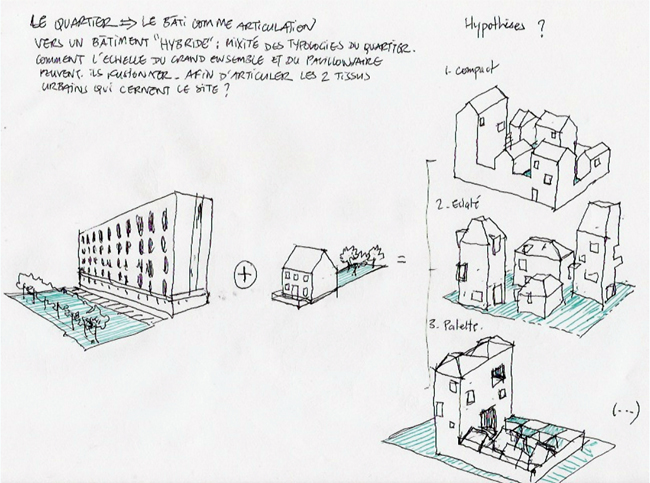 LE QUARTIER => LE BÂTI COMME ARTICULATION
VERS UN BÂTIMENT "HYBRIDE" : MIXITÉ DES TYPOLOGIES DU QUARTIER.
COMMENT L'ÉCHELLE DU GRAND ENSEMBLE ET DU PAVILLONAIRE
PEUVENT. ILS FUSIONNER. AFIN D'ARTICULER LES 2 TISSUS
URBAINS QUI CERNENT LE SITE ?
Hypothèses ?
1. Compact
2. Eclaté
3. Palette.
+
=
(...)